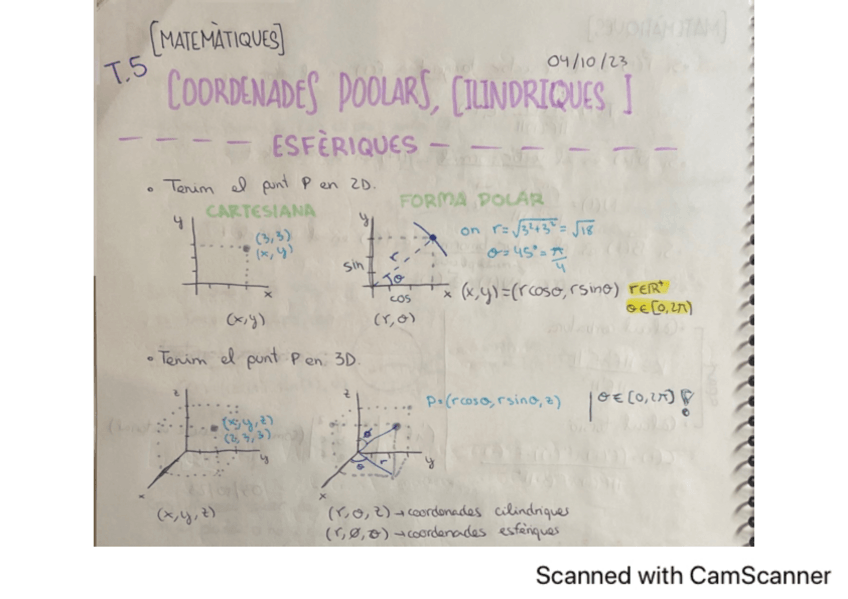 [MATEMÀTIQUES]
T.5
04/10/23
COORDENADES POOLARS, CILINDRIQUES ]
ESFÈRIQUES
• Tenim el punt P en 2D.
CARTESIANA
FORMA POLAR
y
(3,3)
(x,y)
x
(x,y)
y
sin
r
θ
cos
x
(r,θ)
on r=√3²+3² = √18
θ=45°=π/4
(x,y)=(rcosθ, rsinθ)
r∈R⁺
θ∈[0,2π)
• Tenim el punt P en 3D.
z
(x,y,z)
y
x
(x,y,z)
z
ø
θ
r
y
x
P=(rcosθ, rsinθ, z)
θ∈[0,2π)
(r,θ,z)→coordenades cilindriques
(r,ø,θ)→coordenades esfèriques
Scanned with CamScanner